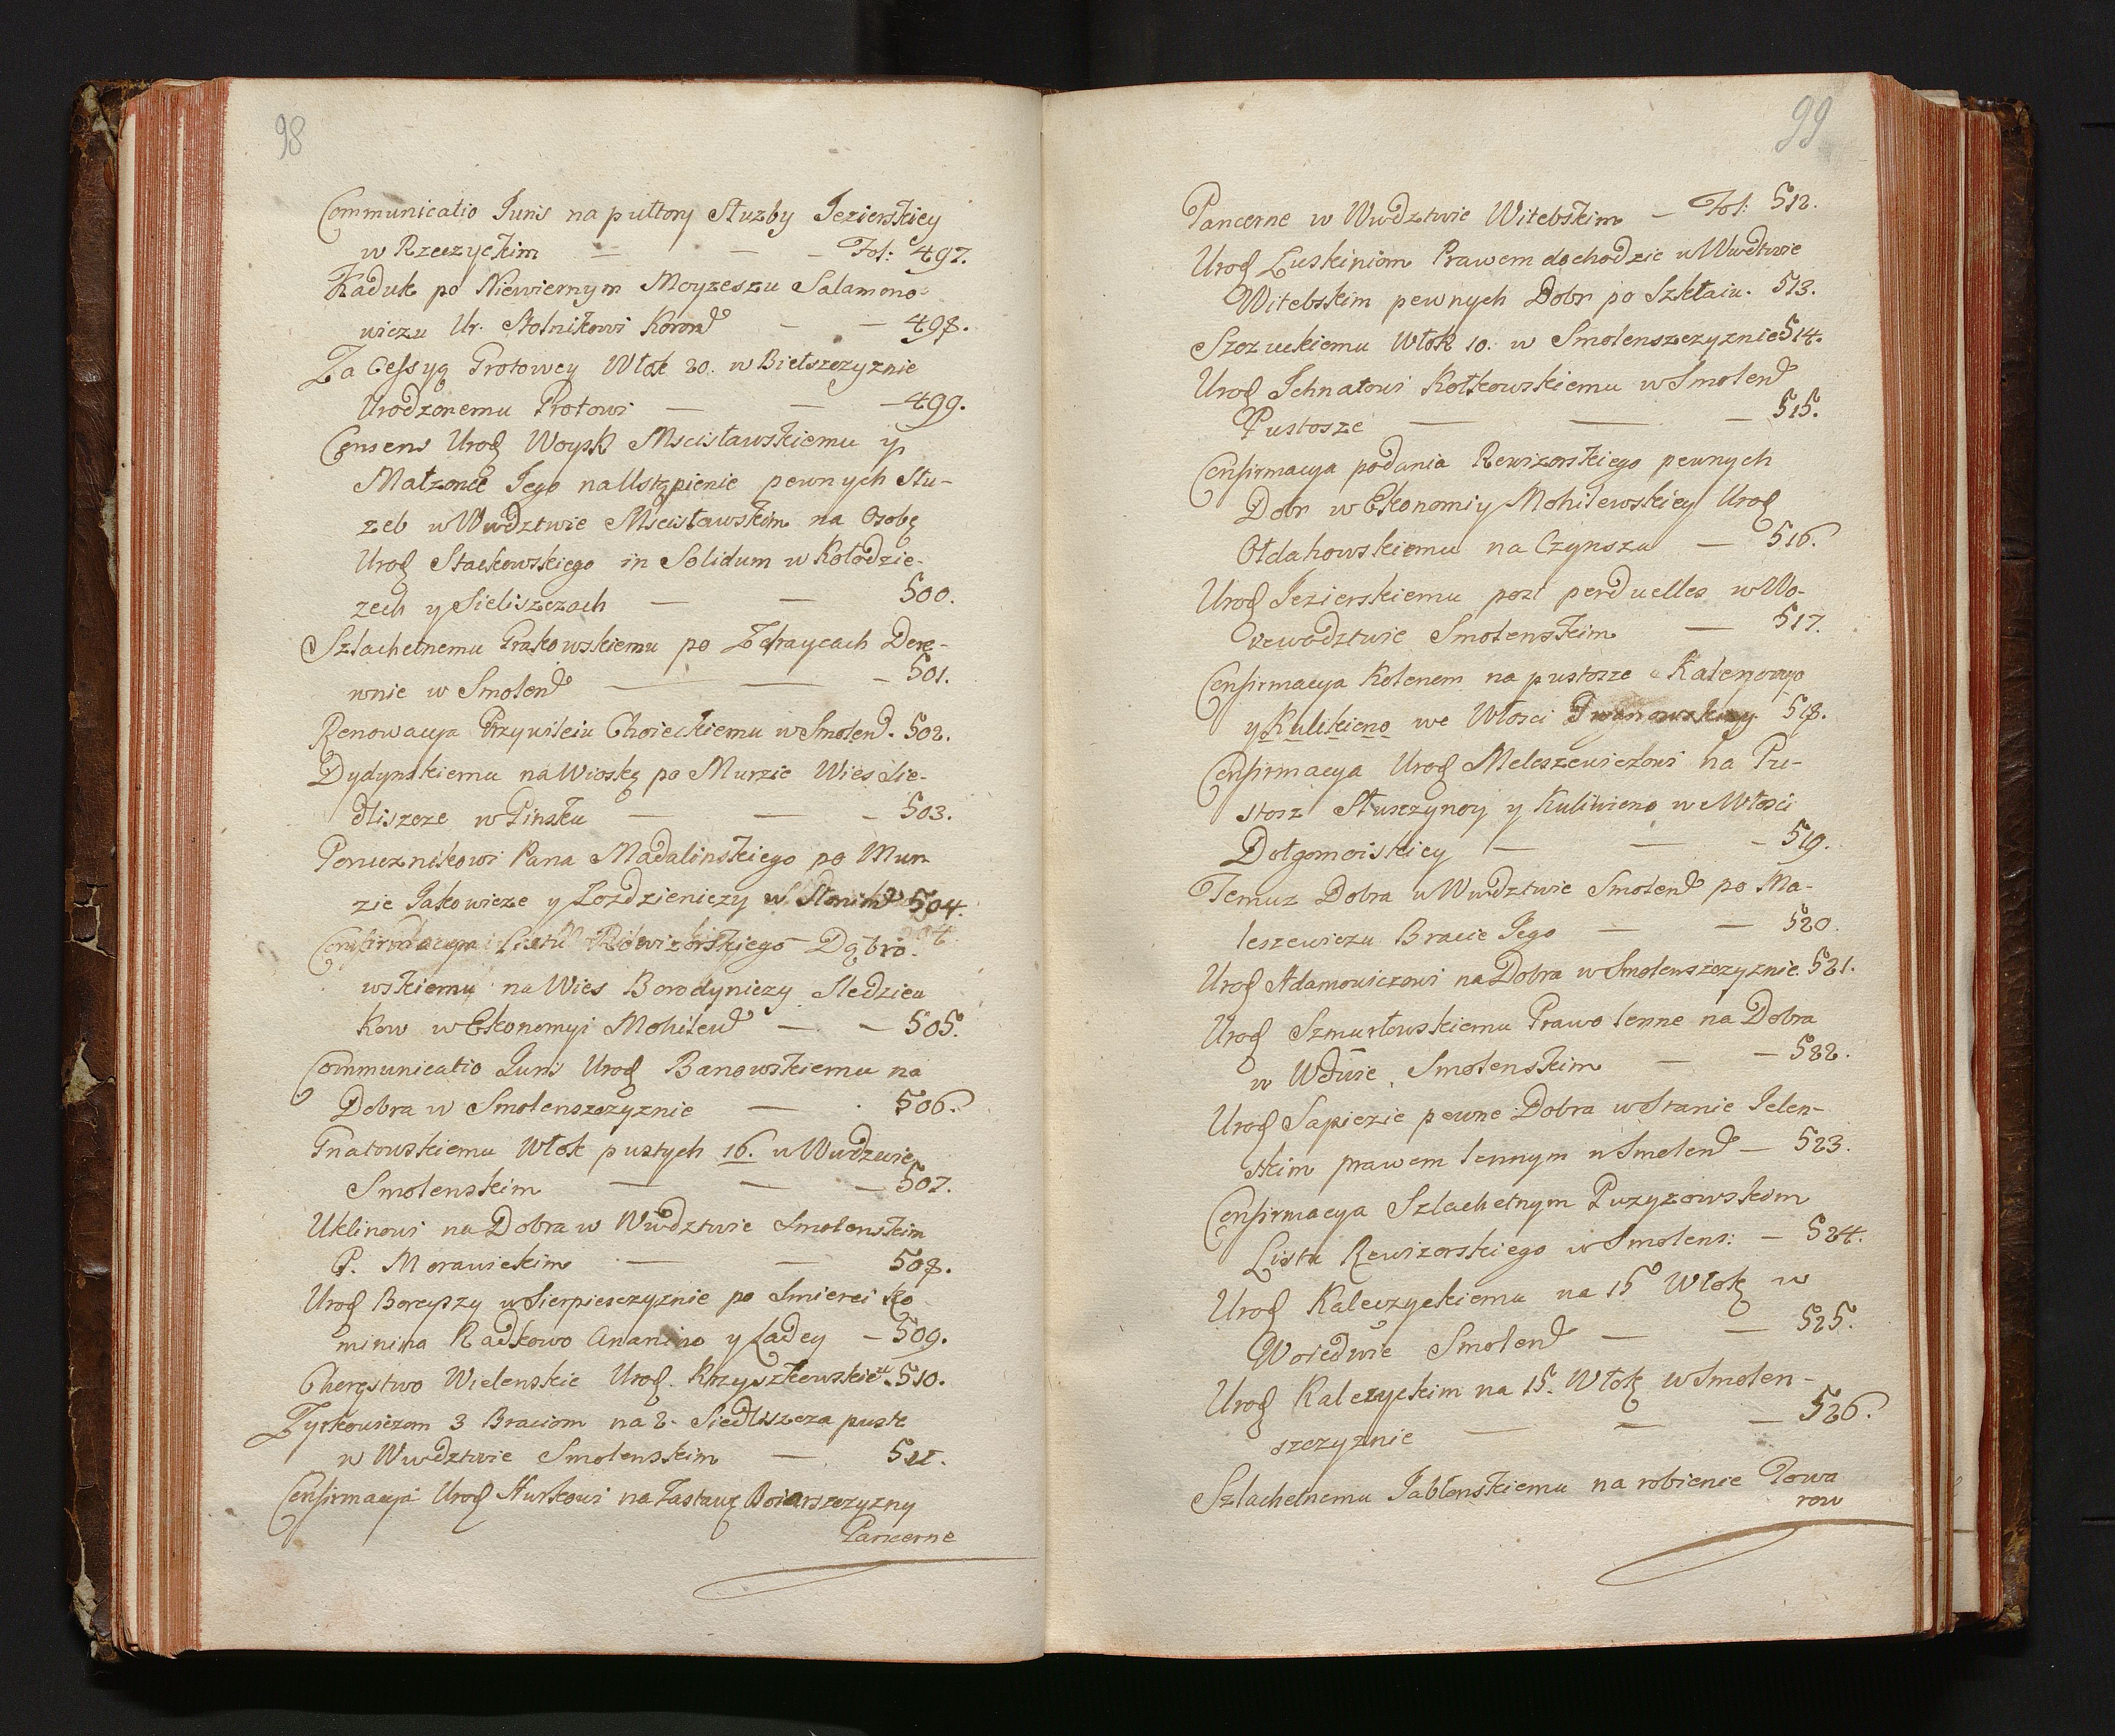 98
Communicatio Juris na pułtory Służby Jezierskiey
w Rzeczyckim — — — Fol: 497.
Kaduk po Niewiernym Moyzeszu Salamono-
wiczu Ur. Stolnikowi Koron — — 498.
Za Cessyą Protowey Włok 20. w Bielszczyznie
Urodzonemu Protowi — — — 499.
Consens Urod Woysk Mscisławskiemu y
Małzonce Jego na Ustąpienie pewnych Słu-
zeb w Wwdztwie Mscisławskim na Osobę
Urod Stackowskiego in Solidum w Kołodzie-
zech y Sieliszczach — — 500.
Szlachetnemu Grakowskiemu po Zdraycach Dere-
wnie w Smolen — — — 501.
Renowacya Przywileiu Choieckiemu w Smolen. 502.
Dydynskiemu na Wioskę po Murzie Wies Sie-
dliszcze w Pinsku — — — 503.
Porucznikowi Pana Madalinskiego po Mur-
zie Jakowicze y Łozdzieniczy w Słonim 504.
Confirmacya Listu Rewizorskiego Dąbro-
wskiemu na Wies Borodyniczy Sledziew
Kow w Ekonomyi Mohilew — — 505.
Communicatio Juris Urod Banowskiemu na
Dobra w Smolenszczyznie — 506.
Gnatowskiemu Włok pustych 16. w Wwdzwie
Smolenskim — — — 507.
Uklinowi na Dobra w Wwdztwie Smolenskim
P. Morawickim — — 508.
Urod Boreyszy w Sierpieszczyznie po Smierci Ko
minina Radkowo Ananino y Ładey — 509.
Choręstwo Wielenskie Urod. Krzyszkewskie 510.
Zyrkowiczom 3 Braciom na 2. Siedliszcza puste
w Wwdztwie Smolenskim — 511.
Confirmacya Urod Hurkowi na Zastawę Boiarszczyzny
Pancerne
99
Pancerne w Wwdztwie Witebskim — Fol: 512.
Urod Łuskiniom Prawem dochodzic w Wwdtwie
Witebskim pewnych Dobr po Szkłaiu. 513.
Szczuckiemu Włok 10. w Smolenszczyznie 514.
Urod Jchnatowi Kołkowskiemu w Smolen
Pustosze — — — 515.
Confirmacya podania Rewizorskiego pewnych
Dobr w Ekonomiy Mohilewskiey Urod
Ołdakowskiemu na Czynszu — 516.
Urod Jezierskiemu post perduelles w Wo-
iewodztwie Smolenskim — 517.
Confirmacya Kolenem na pustosze Kalemowo
y Kulikieno we Włosci Jwanowskiey 518.
Confirmacya Urod Meleszewiczowi na Pu-
stosz Słuszczynoy y Kuliwieno w Włosci
Dołgomoiskiey — — — 519.
Temuz Dobra w Wwdztwie Smolen po Ma-
leszewiczu Bracie Jego — — 520.
Urod Adamowiczowi na Dobra w Smolenszczyznie. 521.
Urod Szmurłowskiemu Prawo lenne na Dobra
w Wdwie Smolenskim — — 522.
Urod Sapiezie pewne Dobra w Stanie Jelen-
skim prawem lennym w Smolen — 523.
Confirmacya Szlachetnym Puzyzowskim
Listu Rewizorskiego w Smolens: — 524.
Urod Kaleczyckiemu na 15 Włok w
Woiedwie Smolen — — 525.
Urod Kaleczyckim na 15. Włok w Smolen-
szczyznie — — — 526.
Szlachetnemu Jabłonskiemu na robienie Towa
row